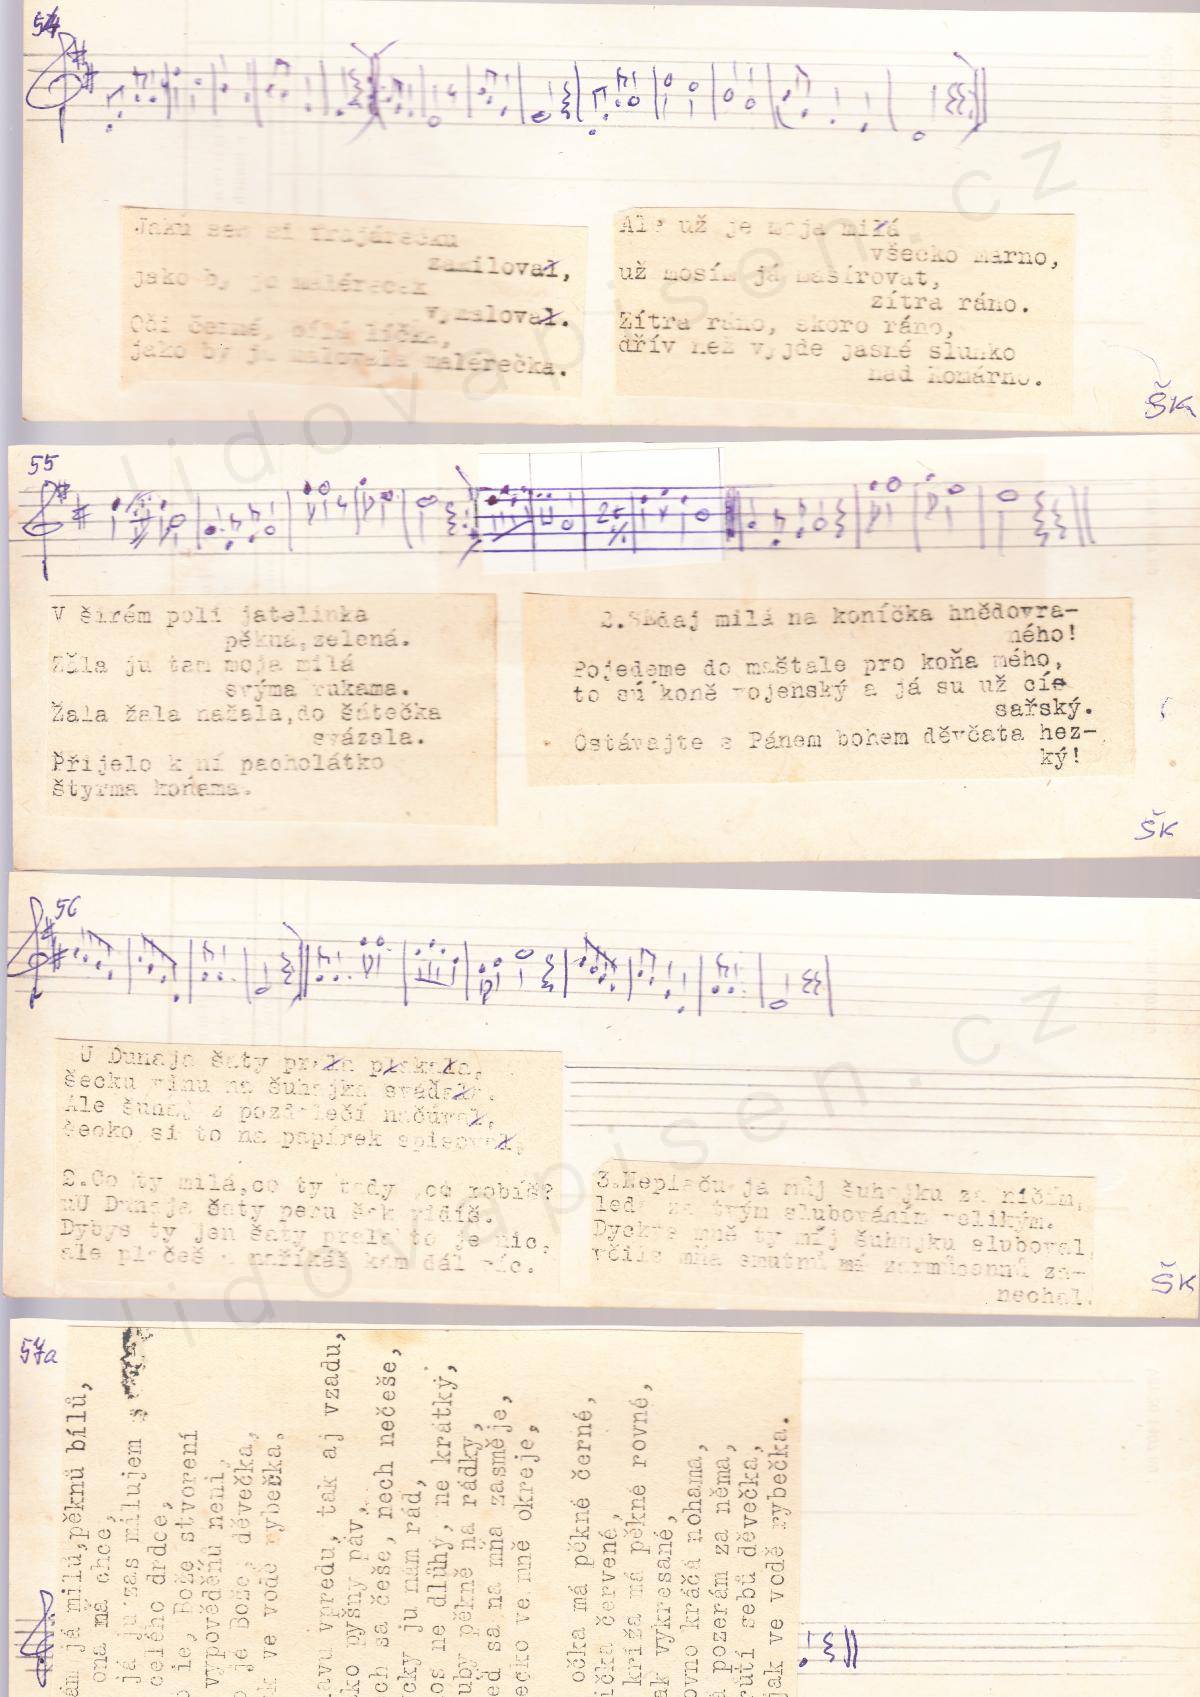 54
Jakú sem si frajárečku
zamiloval,
jako by ju maléreček
vymaloval.
Oči černé, bílá líčka,
jako by ju malovala malérečka.
Ale už je moja milá
všecko marno,
už mosím já mašírovat,
zítra ráno.
Zítra ráno, skoro ráno,
dřív než vyjde jasné slunko
nad Komárno.
ŠK
55
V širém polí jatelinka
pěkná, zelená.
Žala ju tam moja milá
svýma rukama.
Žala žala nažala, do šátečka
svázala.
Přijelo k ní pacholátko
štyrma koňama.
2. Sedaj milá na koníčka hnědovra-
ného!
Pojedeme do maštale pro koňa mého,
to sú koně vojenský a já su už cís
sařský.
Ostávajte s Pánem bohem děvčata hez-
ký!
ŠK
56
U Dunaja šaty prala plakala,
šecku vinu na šuhajka sváďala.
Ale šuhaj z pozdalečí načúval,
šecko si to na papírek spisoval.
2. Co ty milá, co ty tady, co robíš?
uU Dunaja šaty peru šak vidíš.
Dybys ty jen šaty prala to je nic,
ale plačeš a naříkáš kam dál víc.
3. Neplaču já můj šuhajku za ničím,
leda za tvým slubováním velikým.
Dyckys mně ty můj šuhajku sluboval
včils mňa smutnú má zarmúcennú za-
nechal.
ŠK
57a
ám já milú, pěknú bílú,
ona ma chce,
já ju zas milujem s
celého drdce,
o je, Bože stvorení
vypověděnú není,
o je Bože, děvečka,
k ve vodě rybečka.
lavu vpredu, tak aj vzadu,
ko pyšny páv,
ch sa češe, nech nečeše,
cky ju mám rád,
os ne dlúhý, ne krátký,
uby pěkně na rádky,
ed sa na mňa zasměje,
ecko ve mně okreje,
očka má pěkné černé,
íčka červené,
kríža má pěkné rovné,
ak vykresané,
ovno kráčá nohama,
á pozerám za něma,
rútí sebú děvečka,
jak ve vodě rybečka.
lidovapisen.cz
lidovapisen.cz